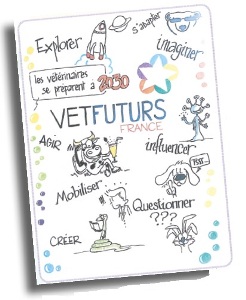 Explorer
S'adapter
imaginer
les vétérinaires
se préparent à 2030
VETFUTURS
FRANCE
AGIR
influencer
Mobiliser
Questionner
???
CRÉER